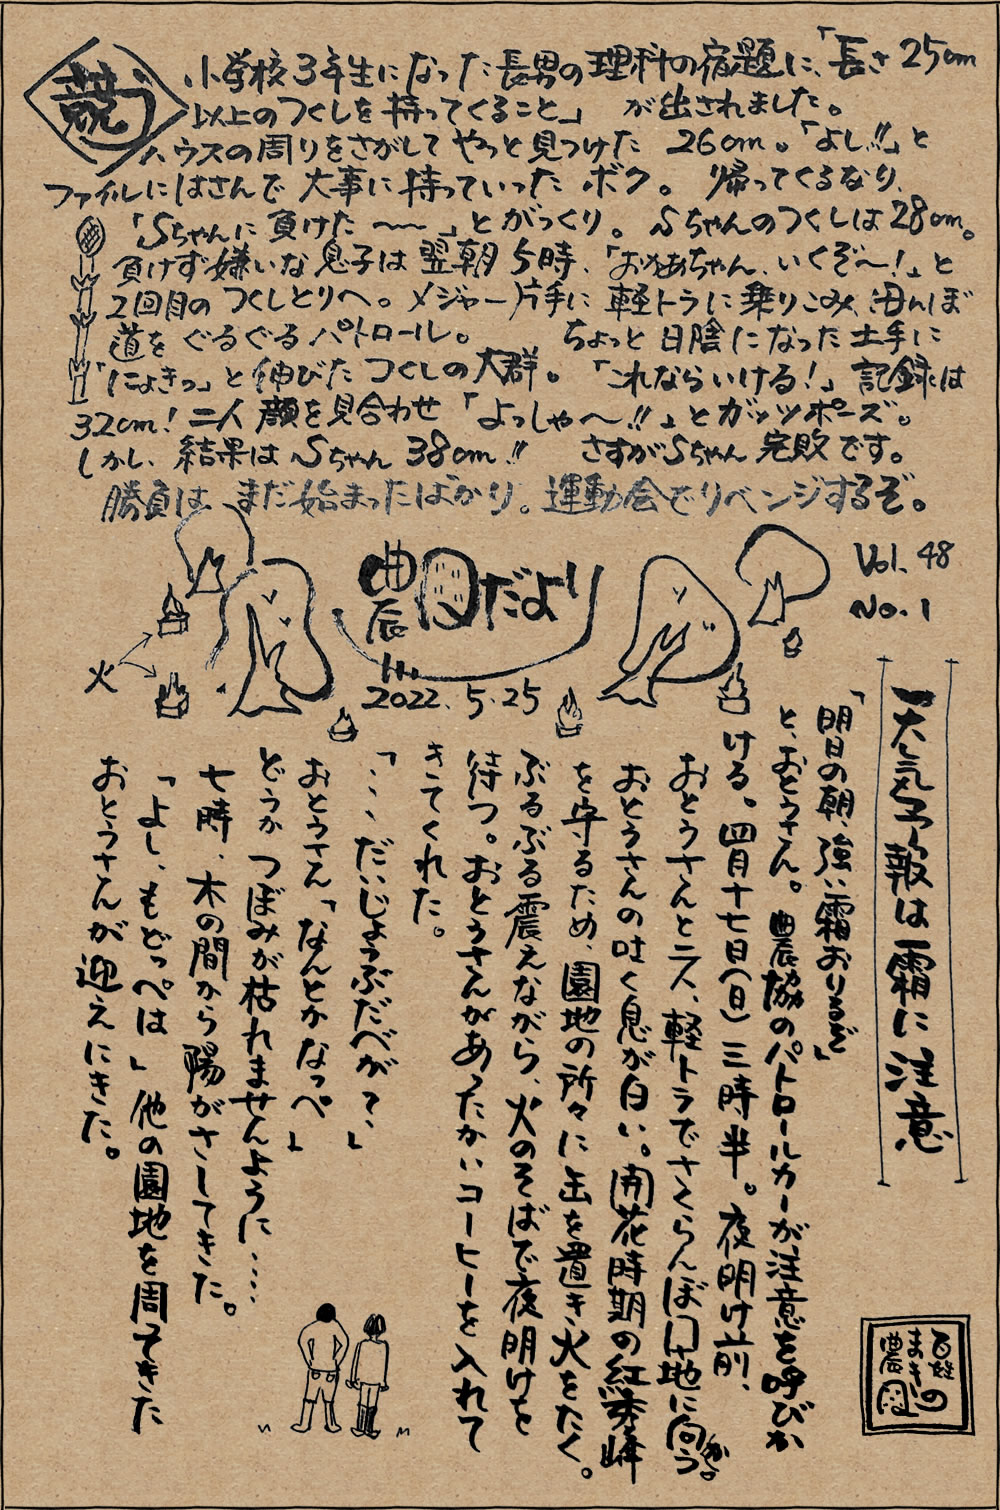 競う
小学校3年生になった長男の理科の宿題に、「長さ25cm
以上のつくしを持ってくること」が出されました。
ハウスの周りをさがしてやっと見つけた 26cm。「よし!!」と
ファイルにはさんで大事に持っていったボク。 帰ってくるなり、
「Sちゃんに負けた〜〜」とがっくり。 Sちゃんのつくしは28cm。
負けず嫌いな息子は翌朝5時、「おかあちゃん、いくぞ〜!」と
2回目のつくしとりへ。メジャー片手に軽トラに乗りこみ、田んぼ
道をぐるぐるパトロール。 ちょっと日陰になった土手に
「にょきっ」と伸びたつくしの大群。「これならいける!」記録は
32cm!二人顔を見合わせ「よっしゃ〜!!」とガッツポーズ。
しかし、結果はSちゃん38cm!! さすがSちゃん完敗です。
勝負は、まだ始まったばかり。運動会でリベンジするぞ。
農園だより
Vol. 48
No. 1
2022. 5. 25
火
天気予報は霜に注意
「明日の朝、強い霜おりるぞ」
と、おとうさん。農協のパトロールカーが注意を呼びか
ける。四月十七日(日)三時半。夜明け前、
おとうさんと二人、軽トラでさくらんぼ園地に向かう。
おとうさんの吐く息が白い。開花時期の紅秀峰
を守るため、園地の所々に缶を置き火をたく。
ぶるぶる震えながら、火のそばで夜明けを
待つ。おとうさんがあったかいコーヒーを入れて
きてくれた。
「・・・だいじょうぶだべが?」
おとうさん「なんとかなっぺ」
どうかつぼみが枯れませんように・・・・
七時、木の間から陽がさしてきた。
「よし、もどっぺは」他の園地を周ってきた
おとうさんが迎えにきた。
百姓の
まきば
農園